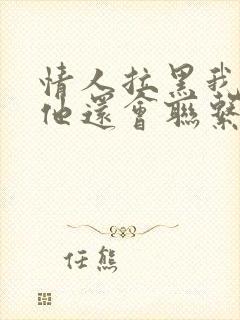 情人拉黑我
他還會聯繫
任熊